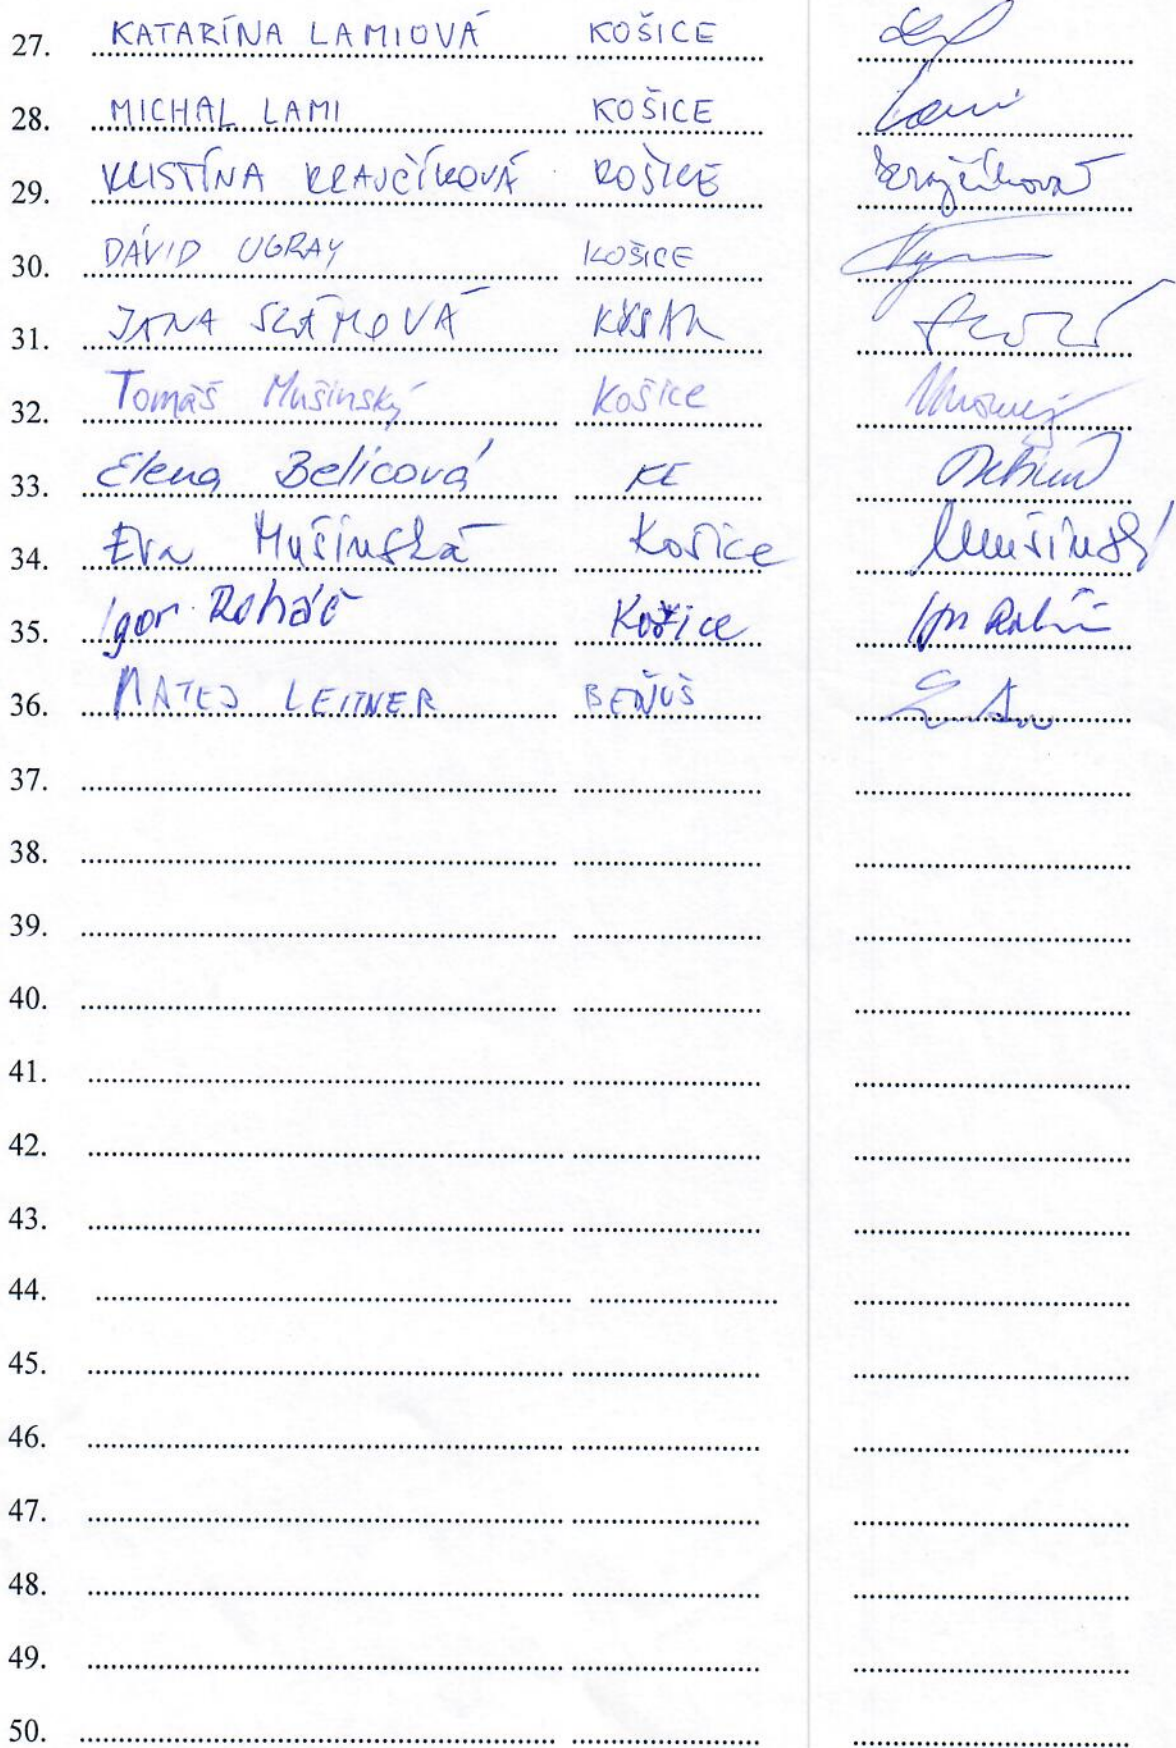 27. KATARÍNA LAMIOVÁ KOŠICE
28. MICHAL LAMI KOŠICE Lami
29. KRISTÍNA KRAVČÍKOVÁ KOŠICE Kravčíková
30. DÁVID UGRAY KOŠICE
31. JANA SLÁMOVÁ KYSAK
32. Tomáš Mušinský Košice
33. Elena Belicová KE
34. Eva Mušinská Košice Mušinsk
35. Igor Roháč Košice
36. MATEJ LEITNER BEŇUŠ
37.
38.
39.
40.
41.
42.
43.
44.
45.
46.
47.
48.
49.
50.